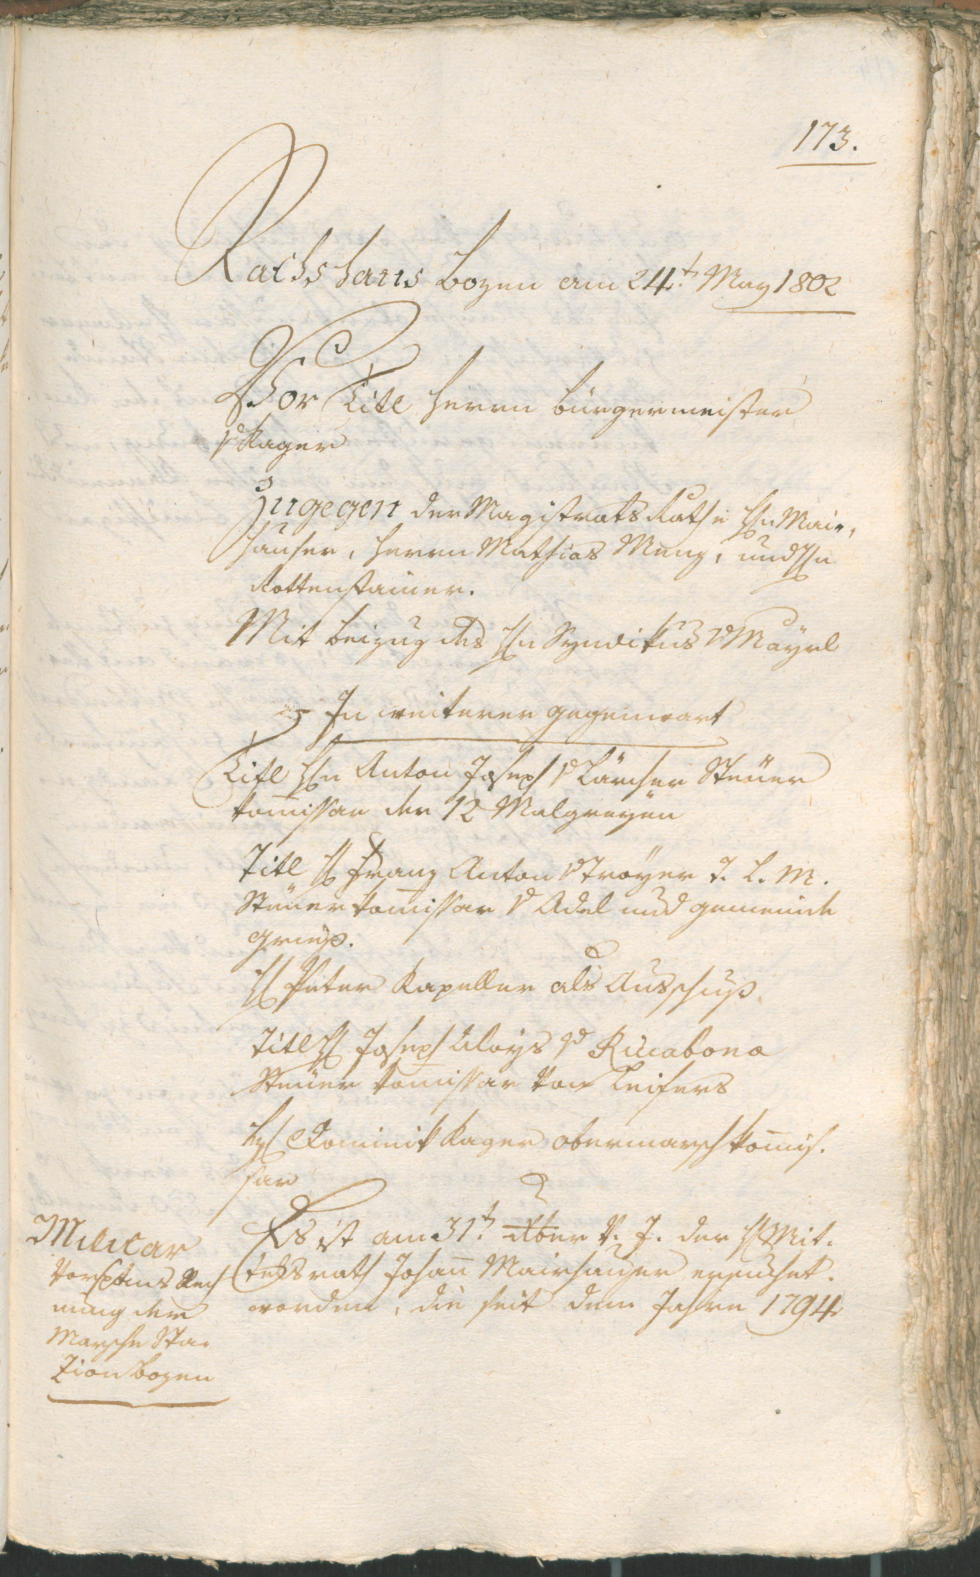 173.
Rathshaus bozen am 24.t May 1802
Vor Titl herrn bürgermeister
v Kager
Zugegen der Magistrats Räthe Hrn Mair,
hauser, herrn Mathias Menz, und Hrn
Rottensteiner.
Mit beizug des Hrn Syndikus v Mayrl
In weiterer gegenwart
Titl Hrn Anton Joseph v Larcher Steuer
komissar der 12 Malgreyen
Titl H Franz Anton v Troyer T. L. M.
Steuer komissar v Adel und gemeinde
gries.
H Peter Kapeller als Ausschuß
Titl H Joseph Aloys v Riccabona
Steuer komissar von Leifers
H Dominik Kager obermarschkomis.
sar
Militar
Vorspans Rech
nung der
Marsche Sta.
zion bozen
Es ist am 31.t v. J. der H Mit.
telsrath Johann Mairhauser ersuchet.
worden, die seit dem Jahre 1794